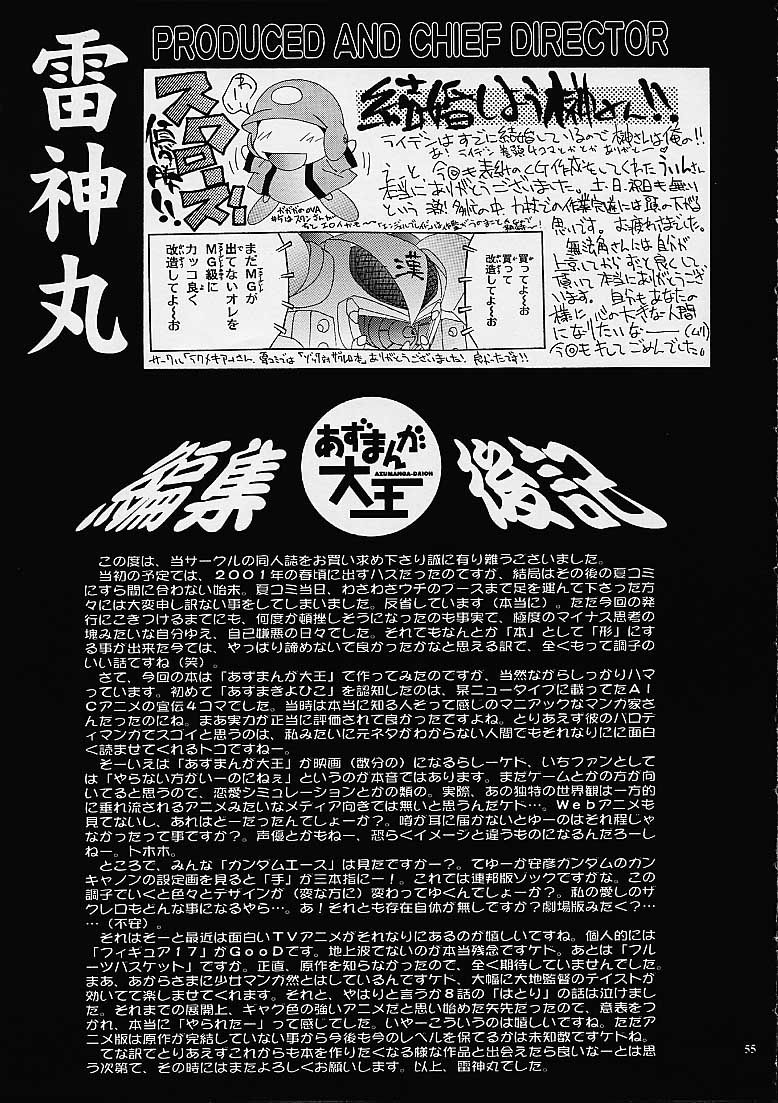 PRODUCED AND CHIEF DIRECTOR
雷神丸
結婚しよう榊さん!!
ライデンはすでに結婚しているので榊さんは俺の!!
えっと、今回表紙のCG作成をしてくれたういんさん
本当にありがとうございました。土・日・祝日も無い
思いです。お疲れさまでした。
無法角さんには自分が
上京してからずっと良くして
頂いて本当にありがとうござ
います。自分もあなたの
様に心の大きな人間
になりたいなー(ムリ)
今回もキしてごめんでした。
買ってよ〜お
買って
改造してよ〜お
漢
まだMGが
出てないオレを
MG級に
カッコ良く
改造してよ〜お
あずまんが
AZUMANGA-DAIOH
大王
編集後記
この度は、当サークルの同人誌をお買い求め下さり誠に有り難うございました。
当初の予定では、2001年の春頃に出すハズだったのですが、結局はその後の夏コミ
にすら間に合わない始末。夏コミ当日、わざわざウチのブースまで足を運んで下さった方
々には大変申し訳ない事をしてしまいました。反省しています(本当に)。ただ今回の発
行にこぎつけるまでにも、何度か頓挫しそうになったのも事実で、極度のマイナス思考の
塊みたいな自分ゆえ、自己嫌悪の日々でした。それでもなんとか「本」として「形」にす
る事が出来た今では、やっぱり諦めないで良かったかなと思える訳で、全くもって調子の
いい話ですね(笑)。
さて、今回の本は「あずまんが大王」で作ってみたのですが、当然ながらしっかりハマ
っています。初めて「あずまきよひこ」を認知したのは、某ニュータイプに載ってたAI
Cアニメの宣伝4コマでした。当時は本当に知る人ぞって感じのマニアックなマンガ家さ
んだったのにね。まあ実力が正当に評価されて良かったですよね。とりあえず彼のパロデ
ィマンガでスゴイと思うのは、私みたいに元ネタがわからない人間でもそれなりにに面白
く読ませてくれるトコですねー。
そーいえば「あずまんが大王」が映画(数分の)になるらしーケド、いちファンとして
は「やらない方がいーのにねぇ」というのが本音ではあります。まだゲームとかの方が向
いてると思うので、恋愛シミュレーションとかの類の。実際、あの独特の世界観は一方的
に垂れ流されるアニメみたいなメディア向きでは無いと思うんだケド…。Webアニメも
見てないし、あれはどーだったんでしょーか?。噂が耳に届かないとゆーのはそれ程じゃ
なかったって事ですか?。声優とかもねー、恐らくイメージと違うものになるんだろーし
ねー。トホホ。
ところで、みんな「ガンダムエース」は見たですかー?。てゆーか安彦ガンダムのガン
キャノンの設定画を見ると「手」が三本指にー!。これでは連邦版ゾックですがな。この
調子でいくと色々とデザインが(変な方に)変わってゆくんでしょーか?。私の愛しのザ
クレロもどんな事になるやら…。あ!それとも存在自体が無しですか?劇場版みたく?…
……(不安)。
それはそーと最近は面白いTVアニメがそれなりにあるのが嬉しいですね。個人的には
「フィギュア17」がGooDです。地上波でないのが本当残念ですケド。あとは「フル
ーツバスケット」ですか。正直、原作を知らなかったので、全く期待していませんでした。
まあ、あからさまに少女マンガ然とはしているんですケド、大幅に大地監督のテイストが
効いてて楽しませてくれます。それと、やはりと言うか8話の「はとり」の話は泣けまし
た。それまでの展開上、ギャグ色の強いアニメだと思い始めた矢先だったので、意表をつ
かれ、本当に「やられたー」って感じでした。いやーこういうのは嬉しいですね。ただア
ニメ版は原作が完結していない事から今後も今のレベルを保てるかは未知数ですケドね。
てな訳でとりあえずこれからも本を作りたくなる様な作品と出会えたら良いなーとは思
う次第で、その時にはまたよろしくお願いします。以上、雷神丸でした。
55